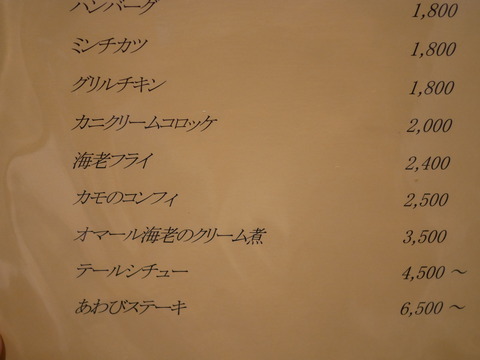 ハンバーグ 1,800
ミンチカツ 1,800
グリルチキン 1,800
カニクリームコロッケ 2,000
海老フライ 2,400
カモのコンフィ 2,500
オマール海老のクリーム煮 3,500
テールシチュー 4,500～
あわびステーキ 6,500～